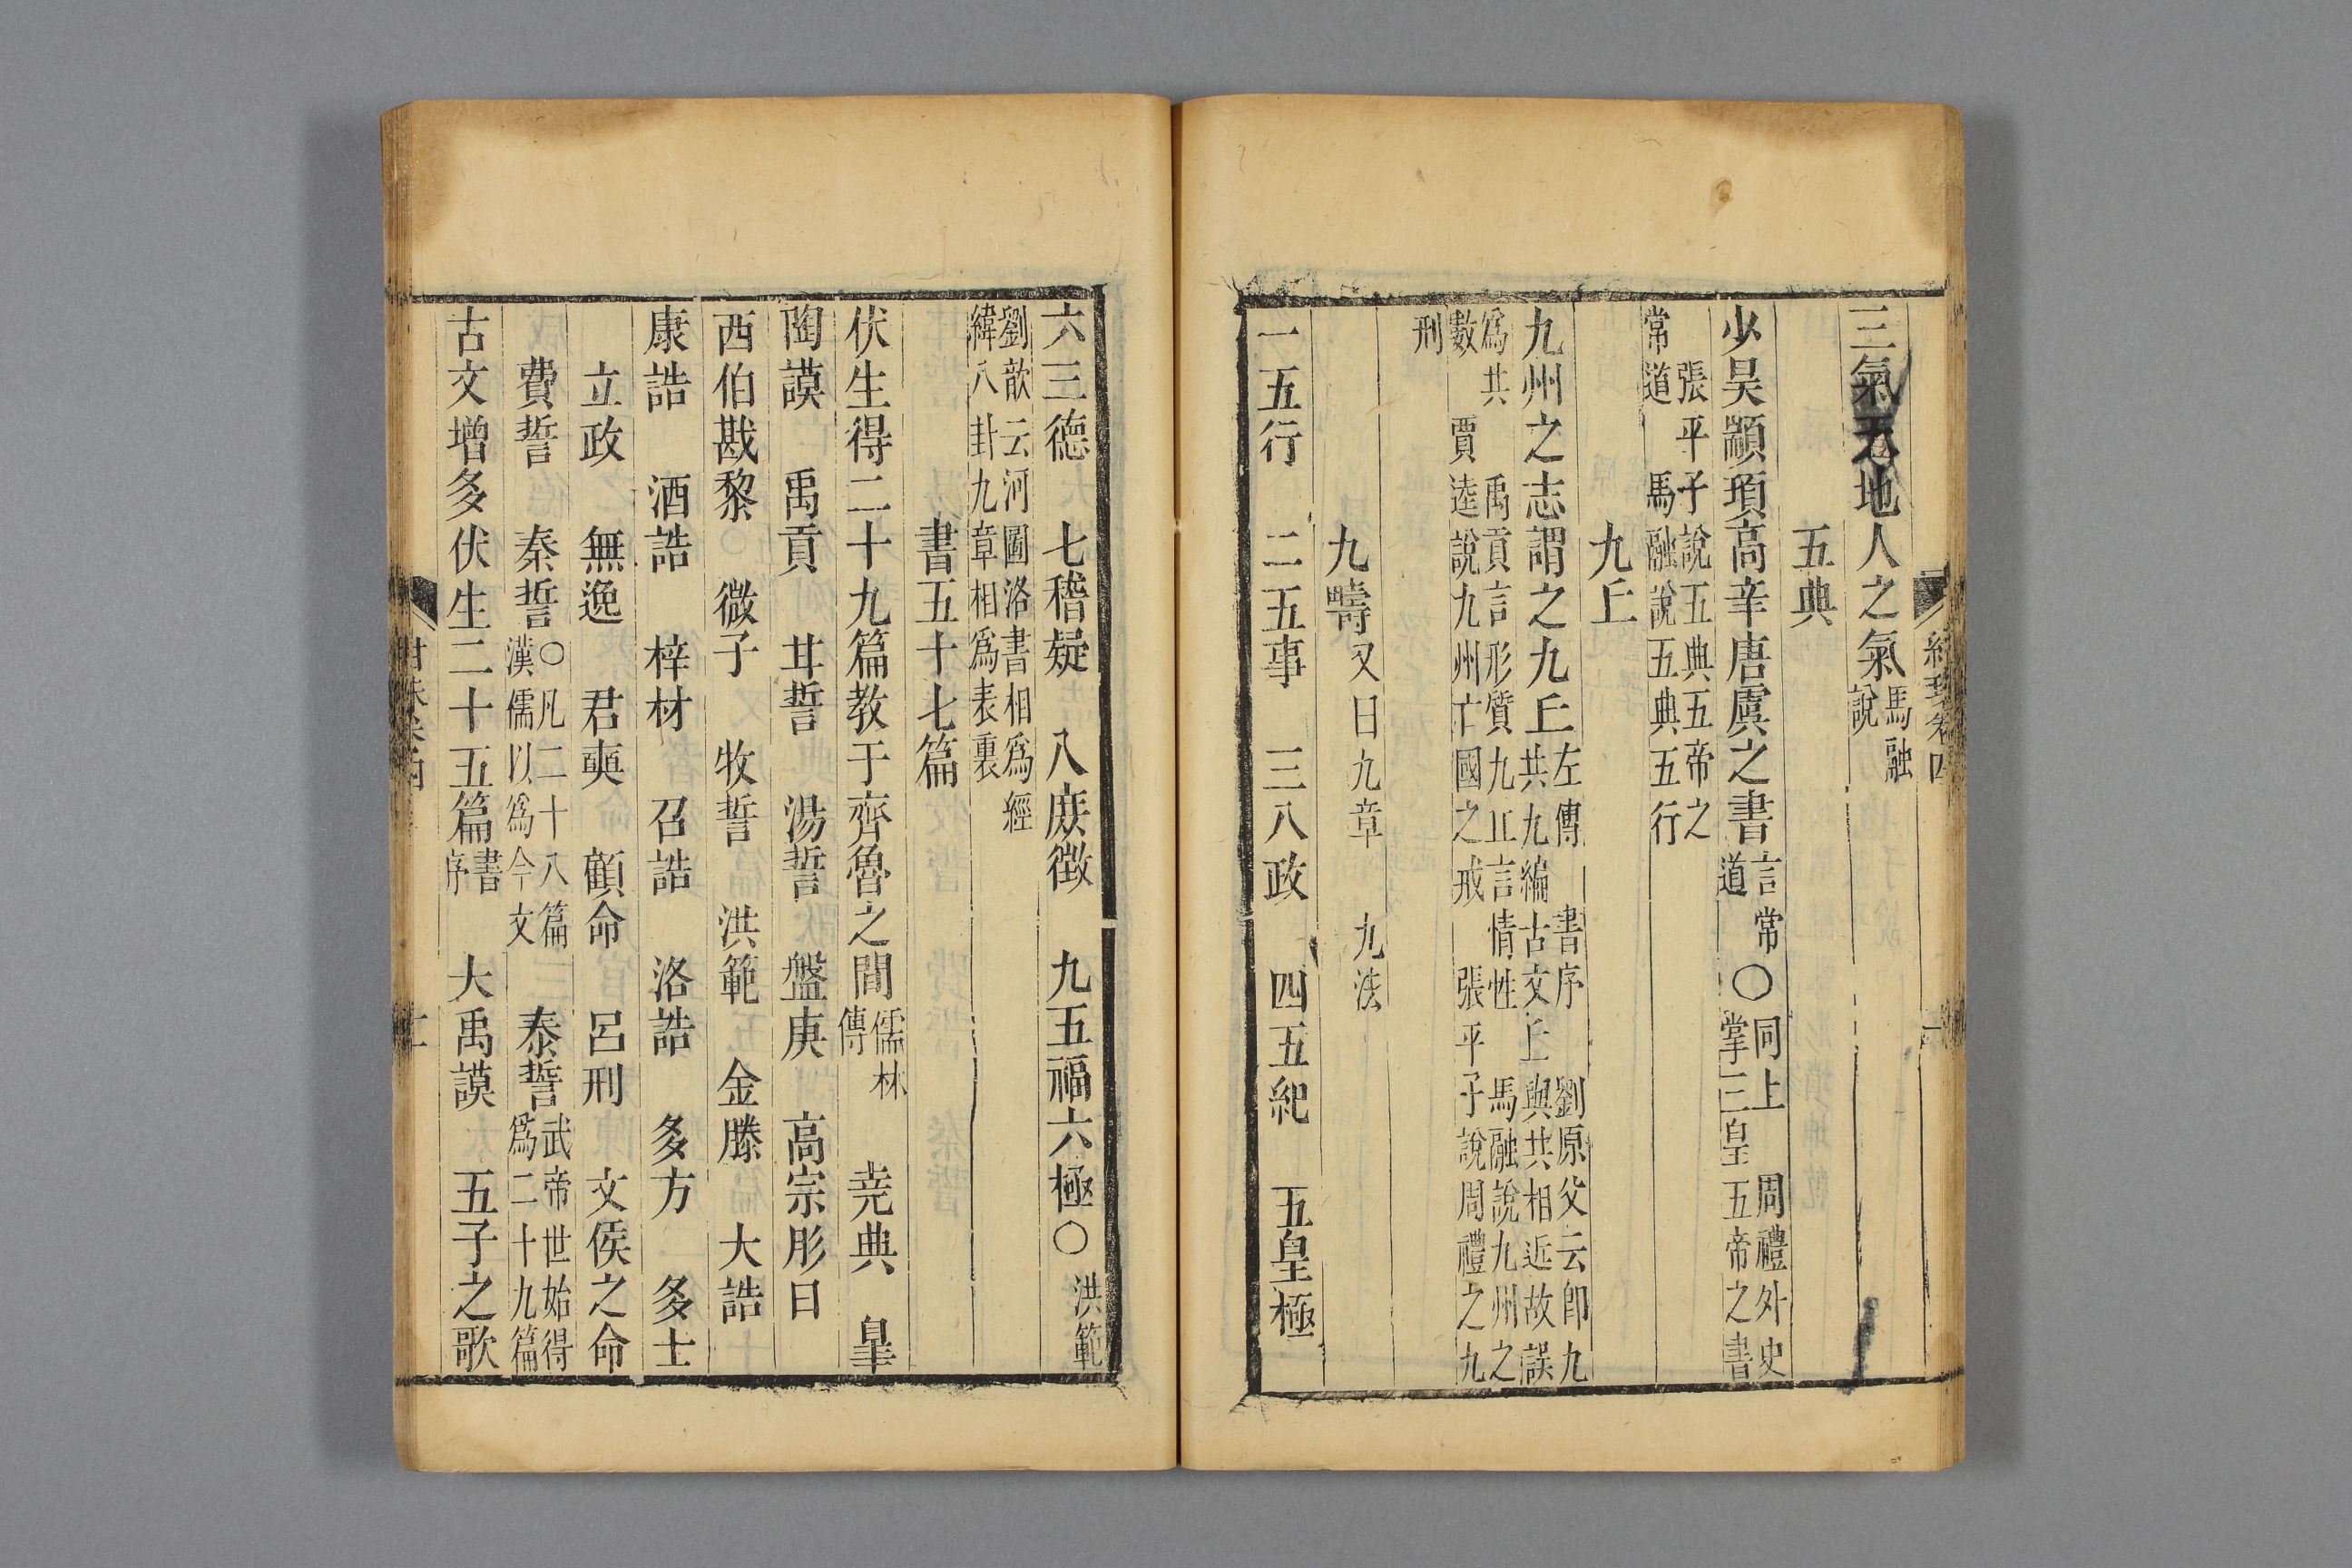 三氣天地人之氣馬融說
五典
少昊顓頊高辛唐虞之書言常道〇同上 周禮外史掌三皇五帝之書
張平子說五典五帝之常道 馬融說五典五行
九丘
九州之志謂之九丘左傳 書序 劉原父云卽九共九編古文丘與共相近故誤
爲共 禹貢言形質九丘言情性 馬融說九州之數 賈逵說九州亡國之戒 張平子說周禮之九
刑
九疇 又曰九章 九法
一五行 二五事 三八政 四五紀 五皇極
六三德 七稽疑 八庶徵 九五福六極〇洪範
劉歆云河圖洛書相爲經緯八卦九章相爲表裏
書五十七篇
伏生得二十九篇教于齊魯之間儒林傳 堯典 皐
陶謨 禹貢 甘誓 湯誓 盤庚 高宗肜日
西伯戡黎 微子 牧誓 洪範 金縢 大誥
康誥 酒誥 梓材 召誥 洛誥 多方 多士
立政 無逸 君奭 顧命 呂刑 文侯之命
費誓 秦誓〇凡二十八篇漢儒以爲今文 泰誓武帝世始得爲二十九篇
古文增多伏生二十五篇書序 大禹謨 五子之歌